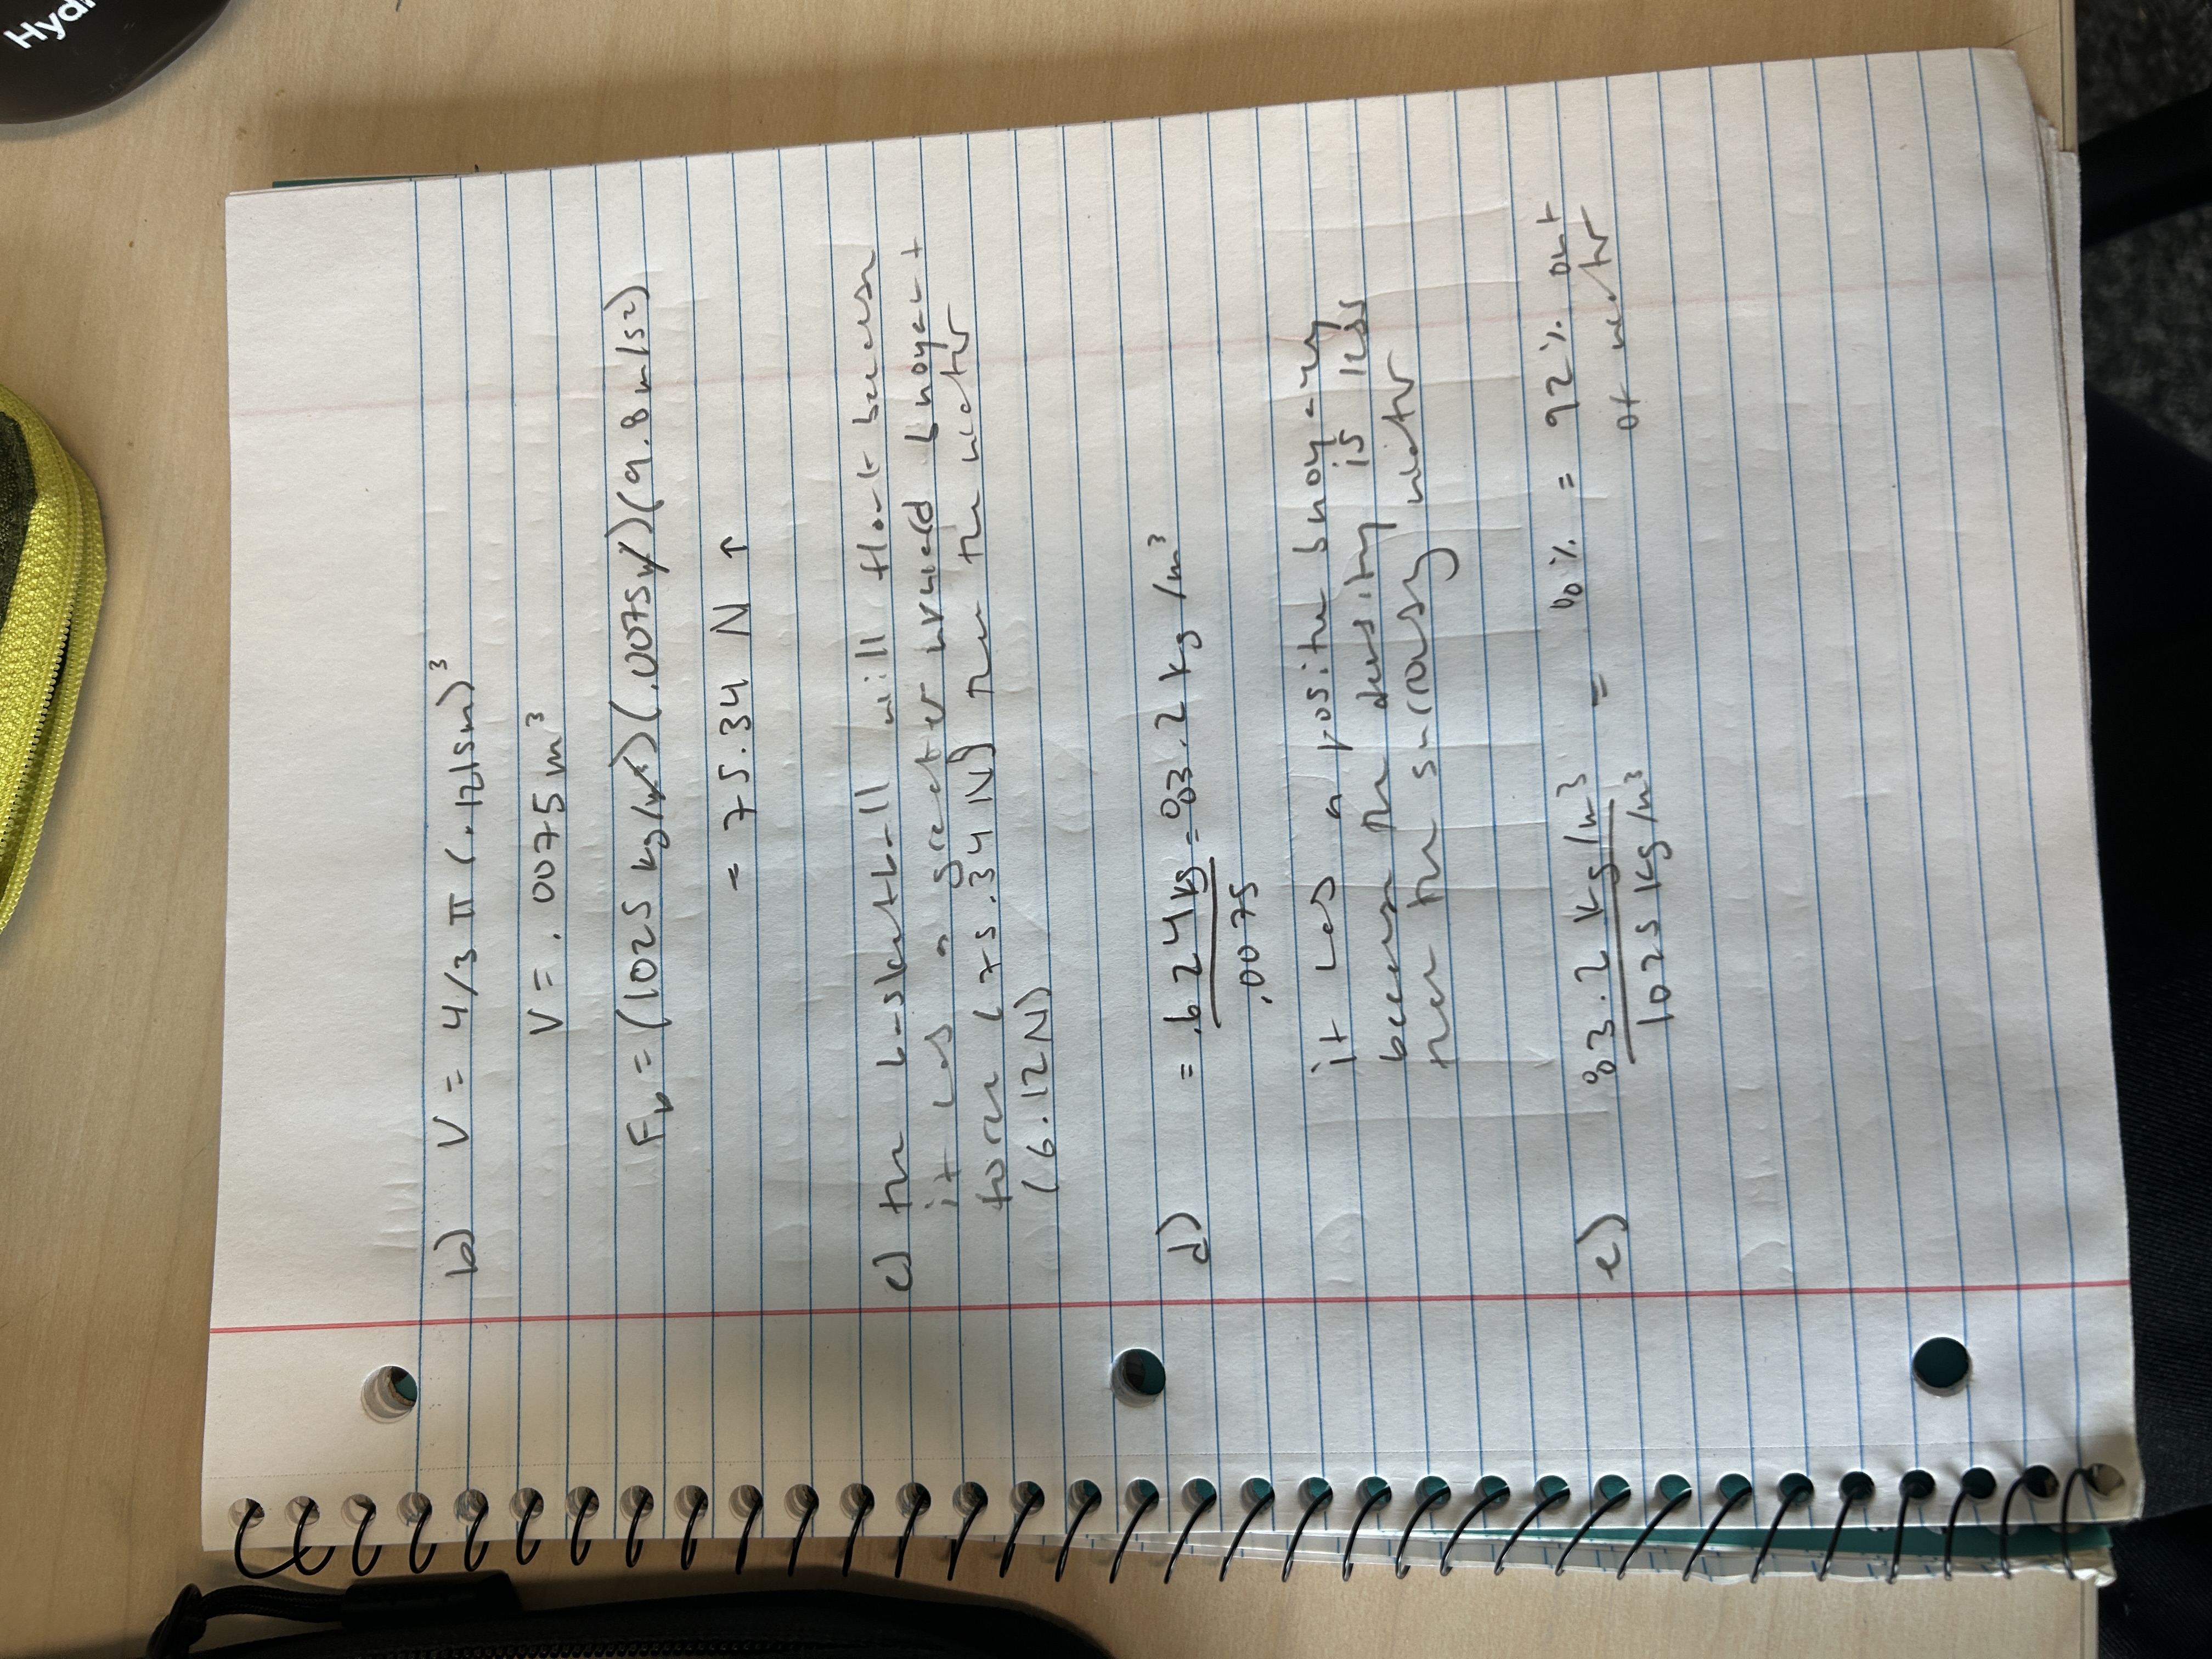 Hyd
b) V = 4/3 π (.1215m)³
V = .0075 m³
F_b = (1025 kg/m³)(.0075m³)(9.8 m/s²)
= 75.34 N ↑
c) the basketball will float because
it has a greater upward buoyant
force (75.34 N) than the water
(6.12N)
d) = .624 kg / .0075 = 83.2 kg/m³
it has a positive buoyancy
because the density is less
than the surrounding water
e) 83.2 kg/m³ / 1025 kg/m³ = 8% = 92% out
of water